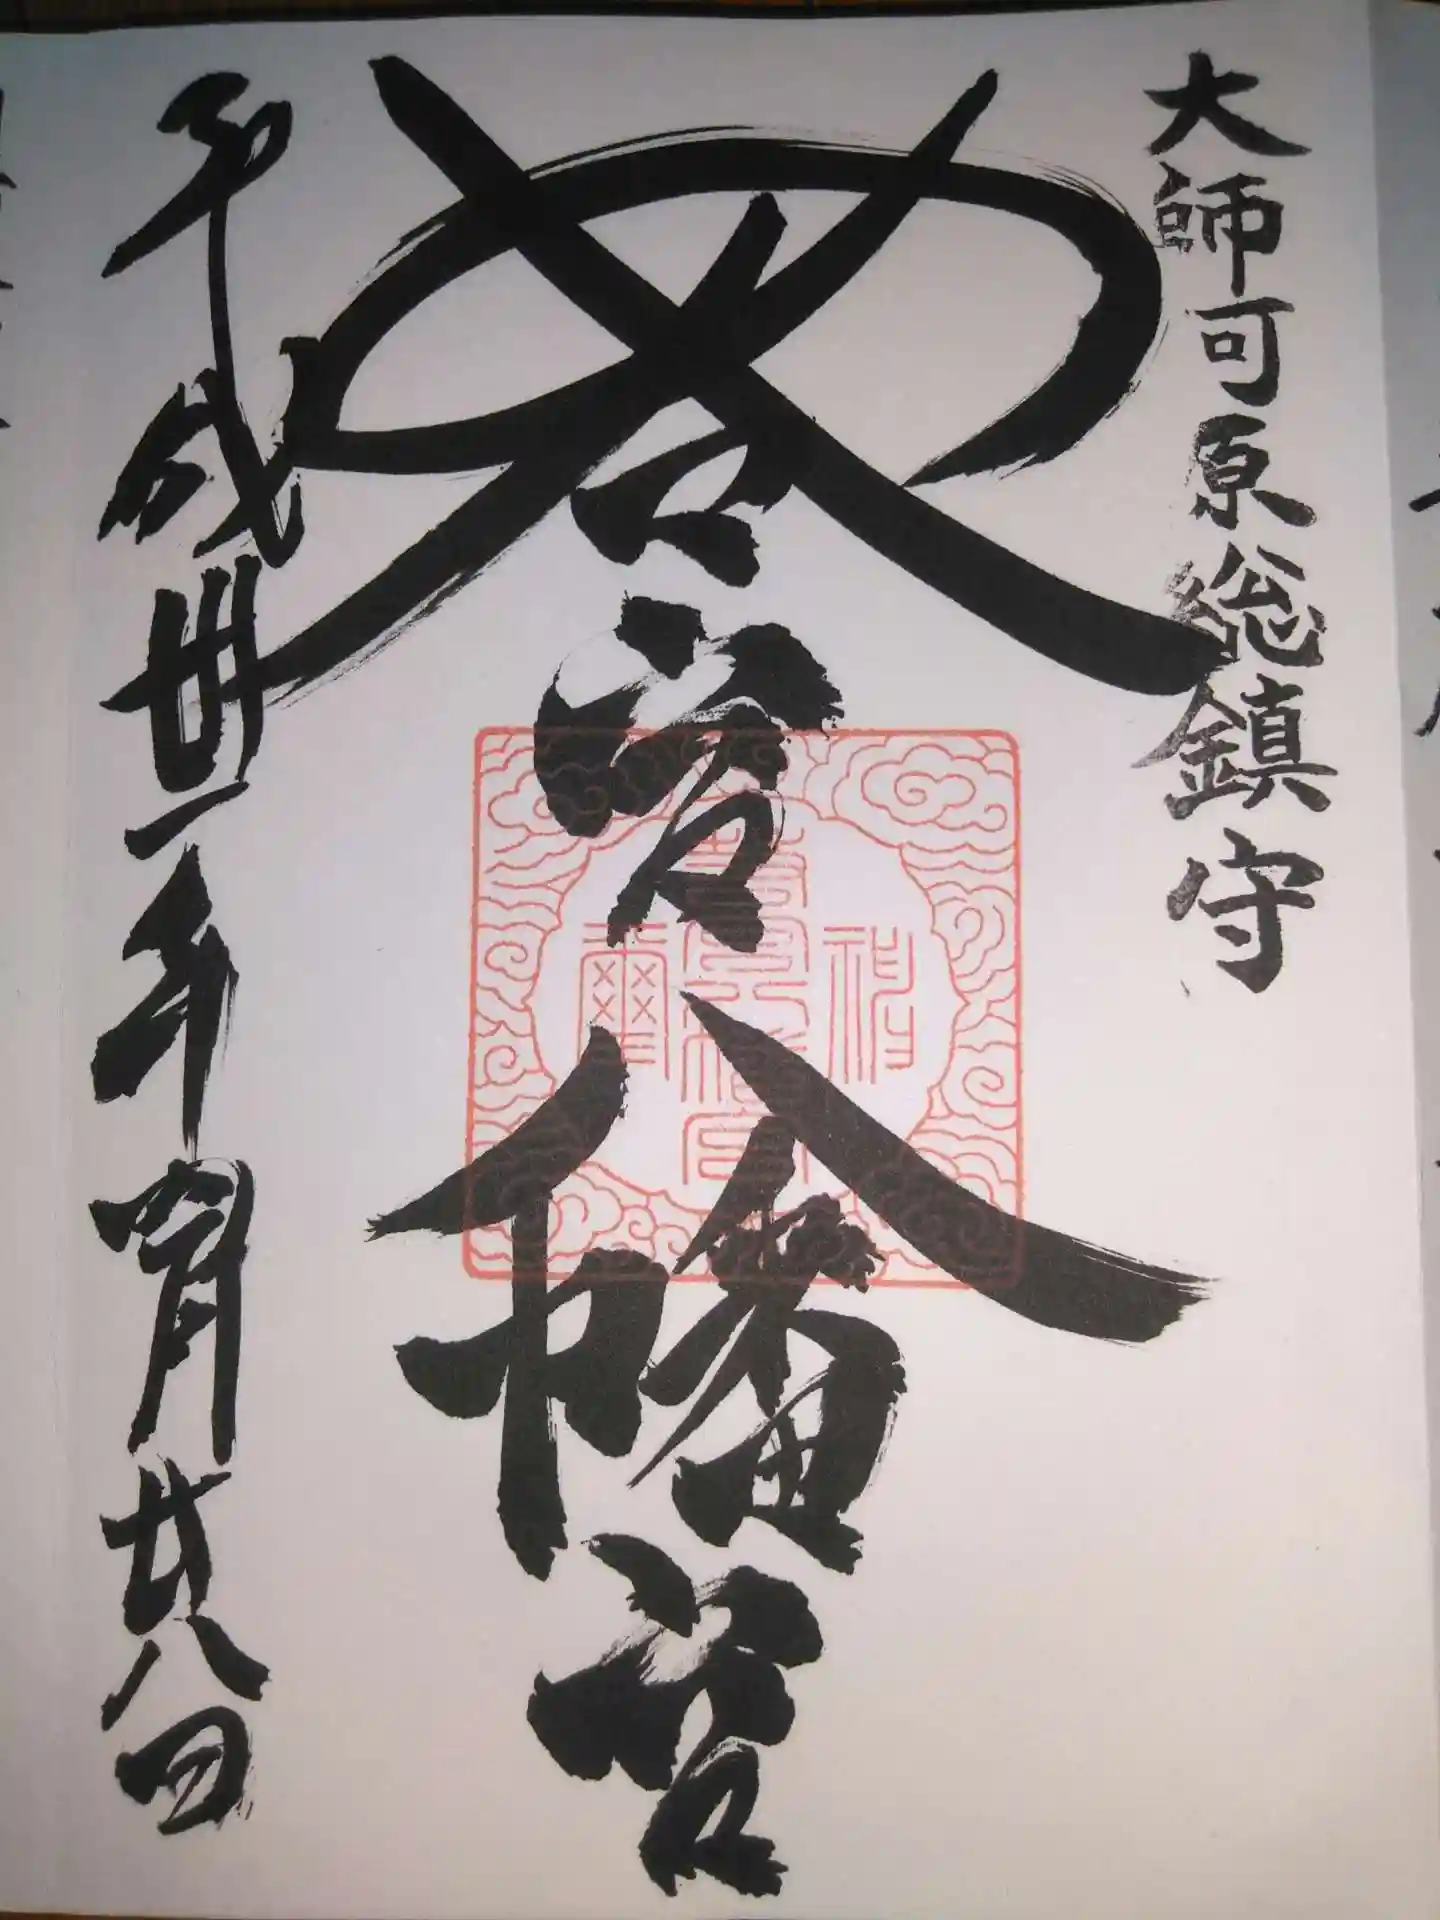 大師河原総鎮守
若宮八幡宮
平成卅一年四月廿八日